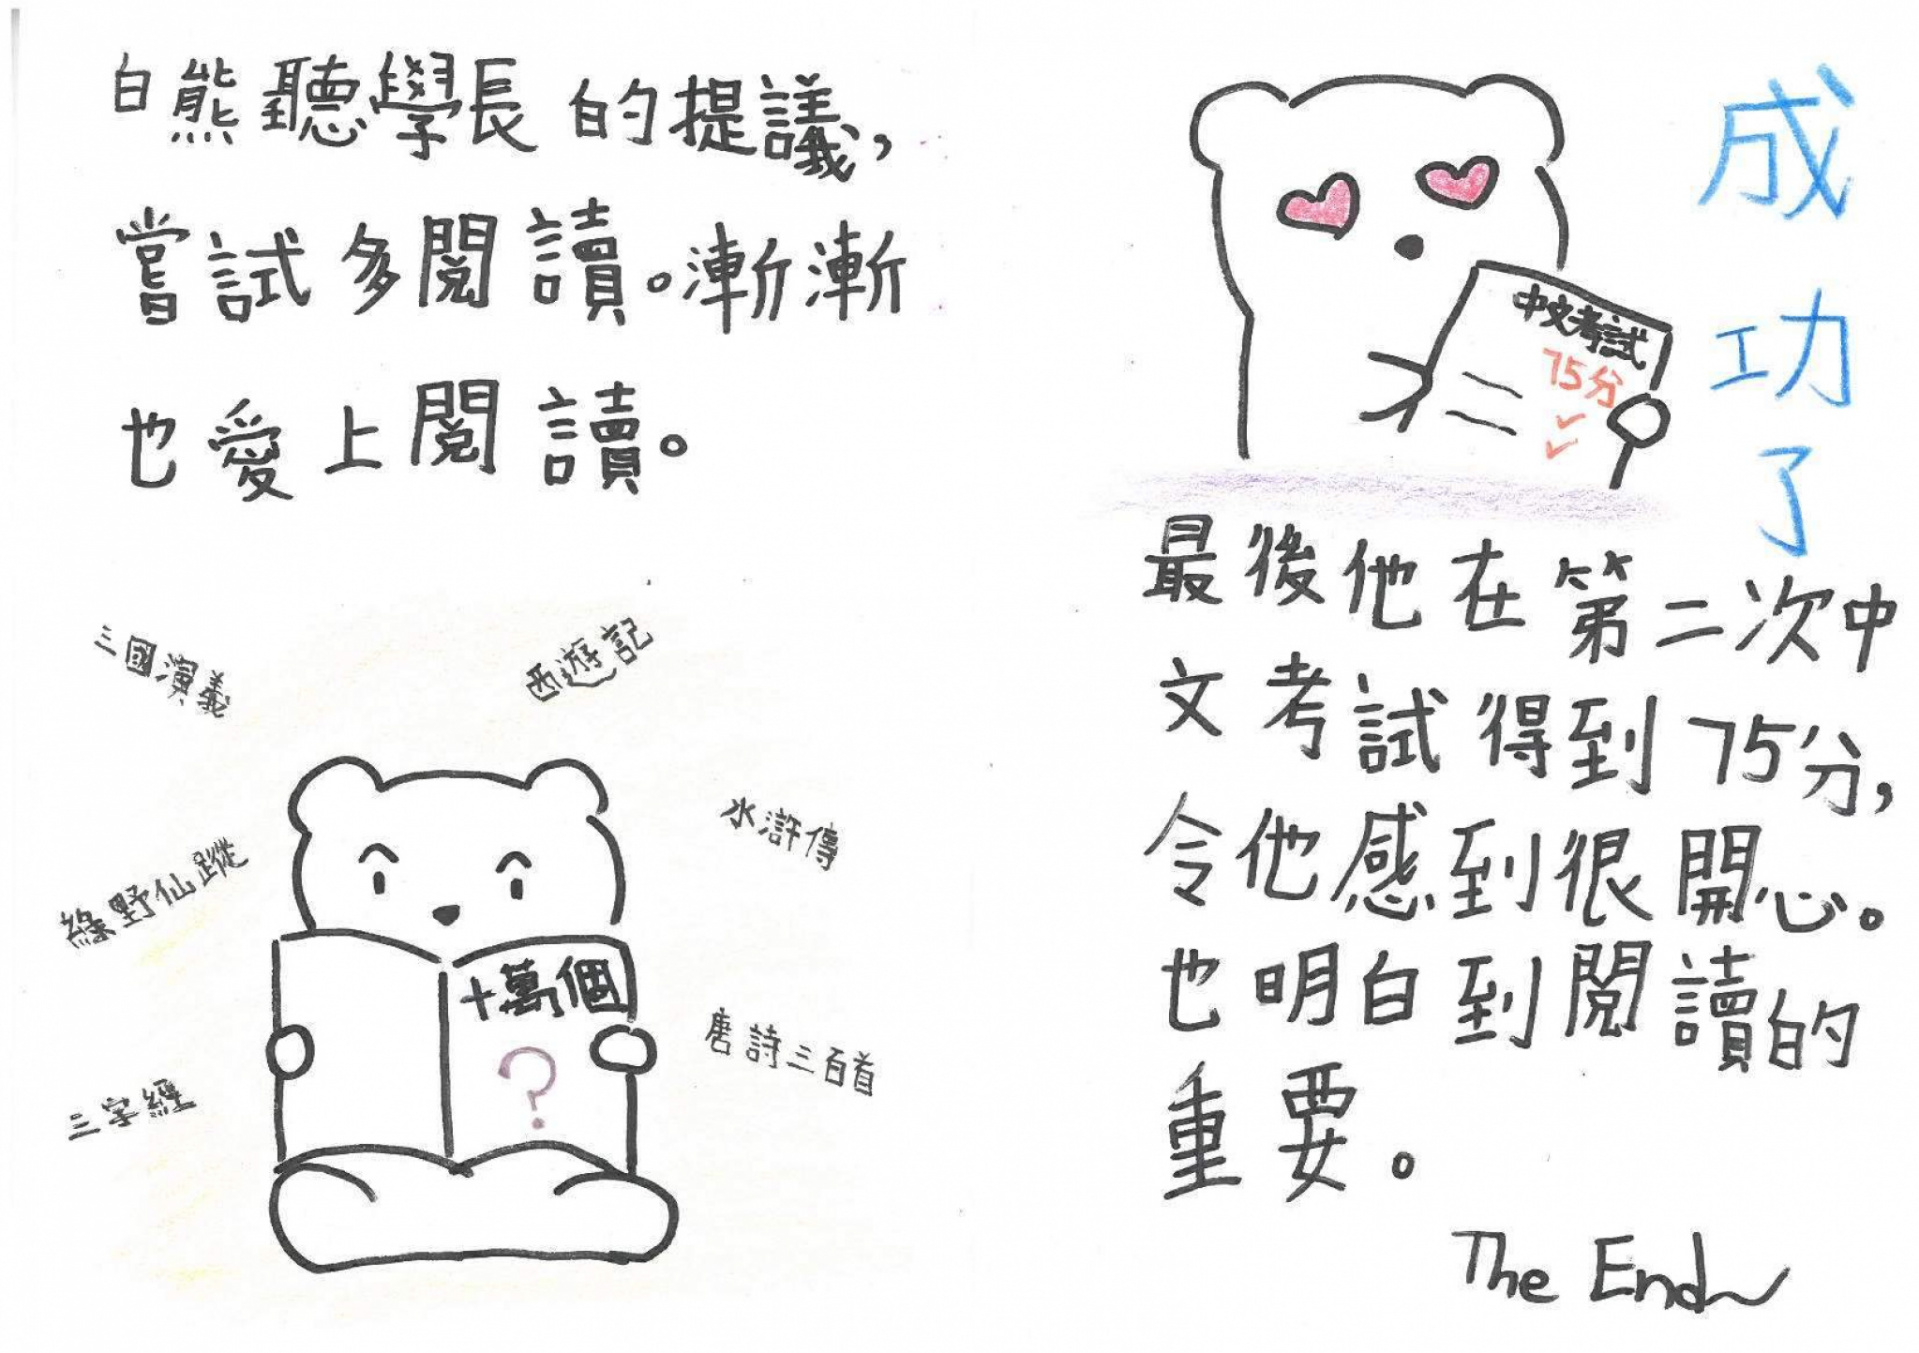 白熊聽學長的提議，
嘗試多閱讀。漸漸
也愛上閱讀。
三國演義
西遊記
水滸傳
綠野仙蹤
十萬個
?
唐詩三百首
三字經
成功了
中文考試
75分
最後他在第二次中
文考試得到75分，
令他感到很開心。
也明白到閱讀的
重要。
The End~